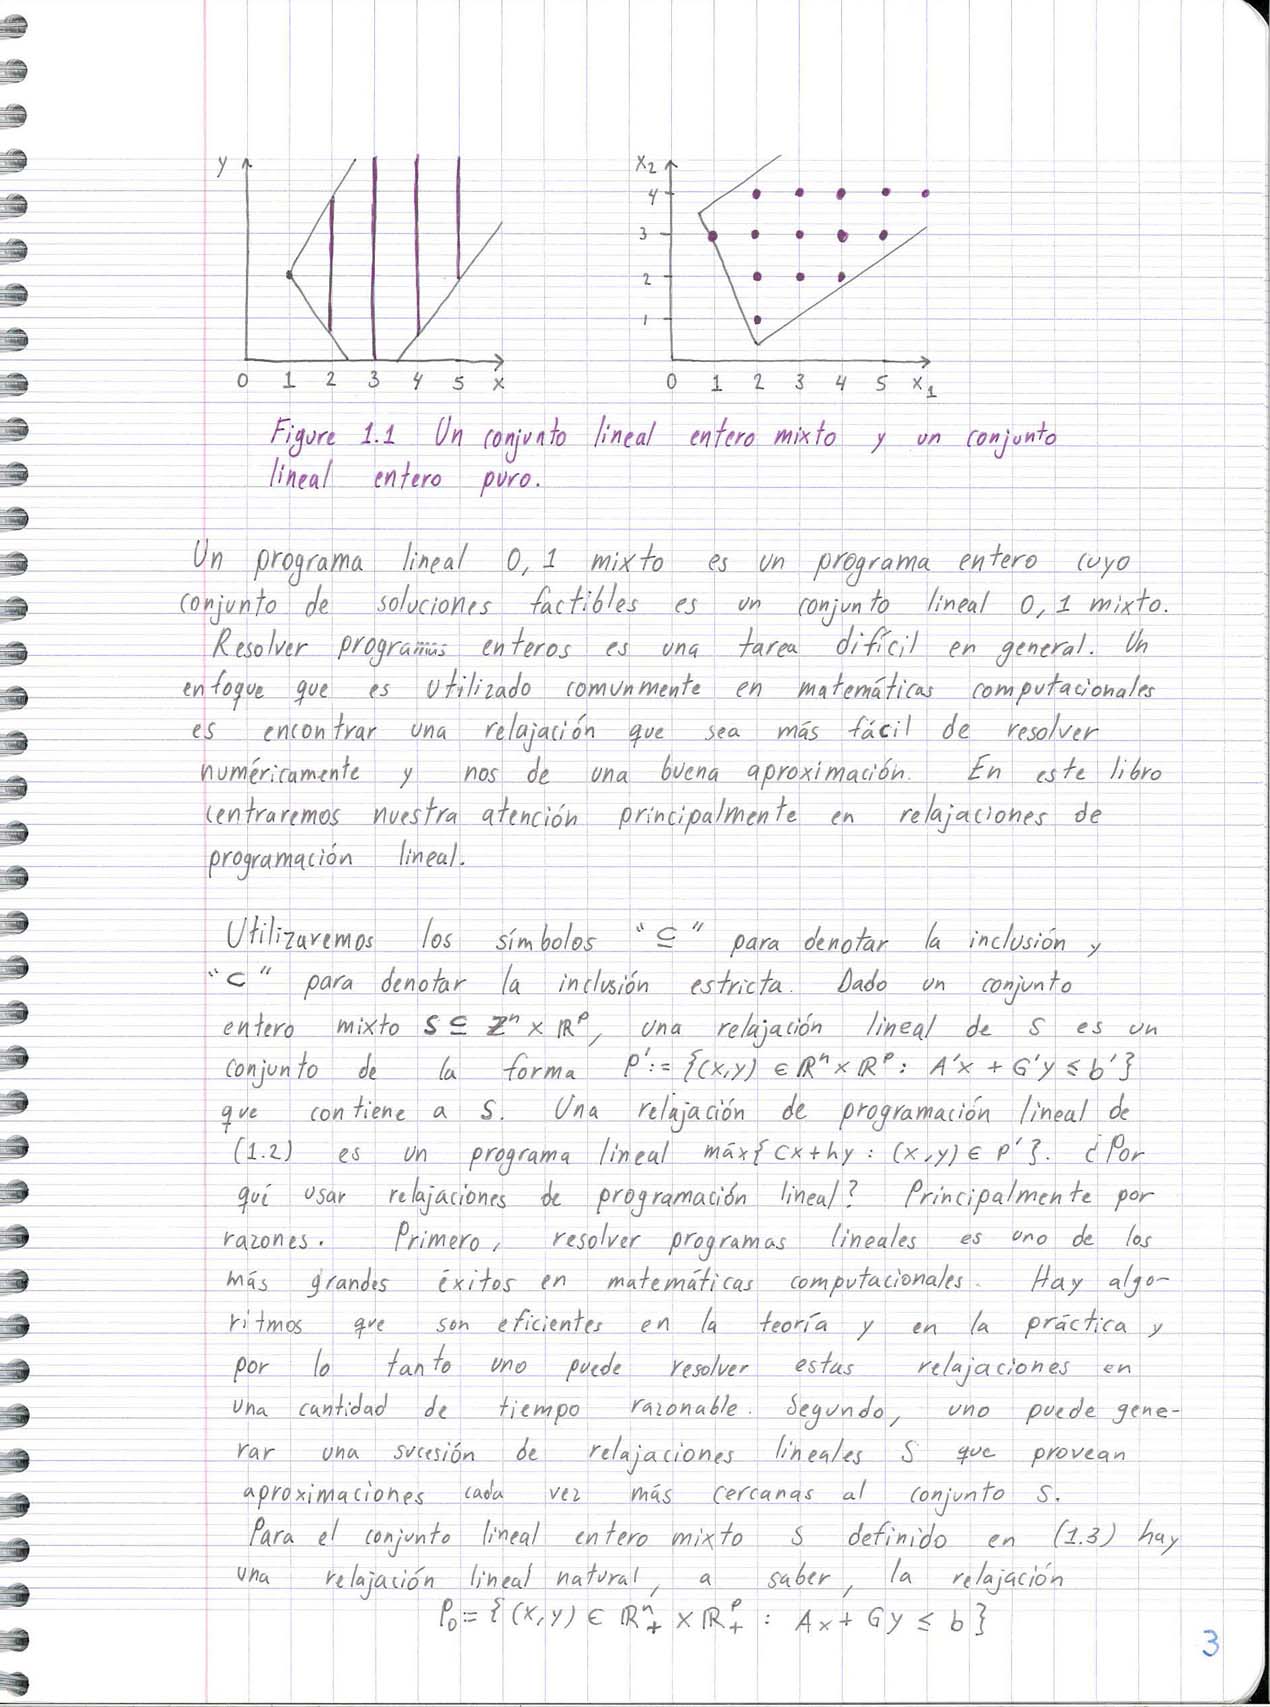 y
0 1 2 3 4 5 x
x₂
4
3
2
1
0 1 2 3 4 5 x₁
Figure 1.1 Un conjunto lineal entero mixto y un conjunto
lineal entero puro.
Un programa lineal 0,1 mixto es un programa entero cuyo
conjunto de soluciones factibles es un conjunto lineal 0,1 mixto.
Resolver programas enteros es una tarea difícil en general. Un
enfoque que es utilizado comunmente en matemáticas computacionales
es encontrar una relajación que sea más fácil de resolver
numéricamente y nos de una buena aproximación. En este libro
centraremos nuestra atención principalmente en relajaciones de
programación lineal.
Utilizaremos los símbolos "⊆" para denotar la inclusión y
"⊂" para denotar la inclusión estricta. Dado un conjunto
entero mixto S ⊆ ℤⁿ × ℝᵖ, una relajación lineal de S es un
conjunto de la forma P' := {(x,y) ∈ ℝⁿ × ℝᵖ : A'x + G'y ≤ b'}
que contiene a S. Una relajación de programación lineal de
(1.2) es un programa lineal máx{cx+hy : (x,y) ∈ P'}. ¿Por
qué usar relajaciones de programación lineal? Principalmente por
razones. Primero, resolver programas lineales es uno de los
más grandes éxitos en matemáticas computacionales. Hay algo-
ritmos que son eficientes en la teoría y en la práctica y
por lo tanto uno puede resolver estas relajaciones en
una cantidad de tiempo razonable. Segundo, uno puede gene-
rar una sucesión de relajaciones lineales S que provean
aproximaciones cada vez más cercanas al conjunto S.
Para el conjunto lineal entero mixto S definido en (1.3) hay
una relajación lineal natural, a saber, la relajación
P₀ = {(x,y) ∈ ℝⁿ₊ × ℝᵖ₊ : Ax + Gy ≤ b}
3